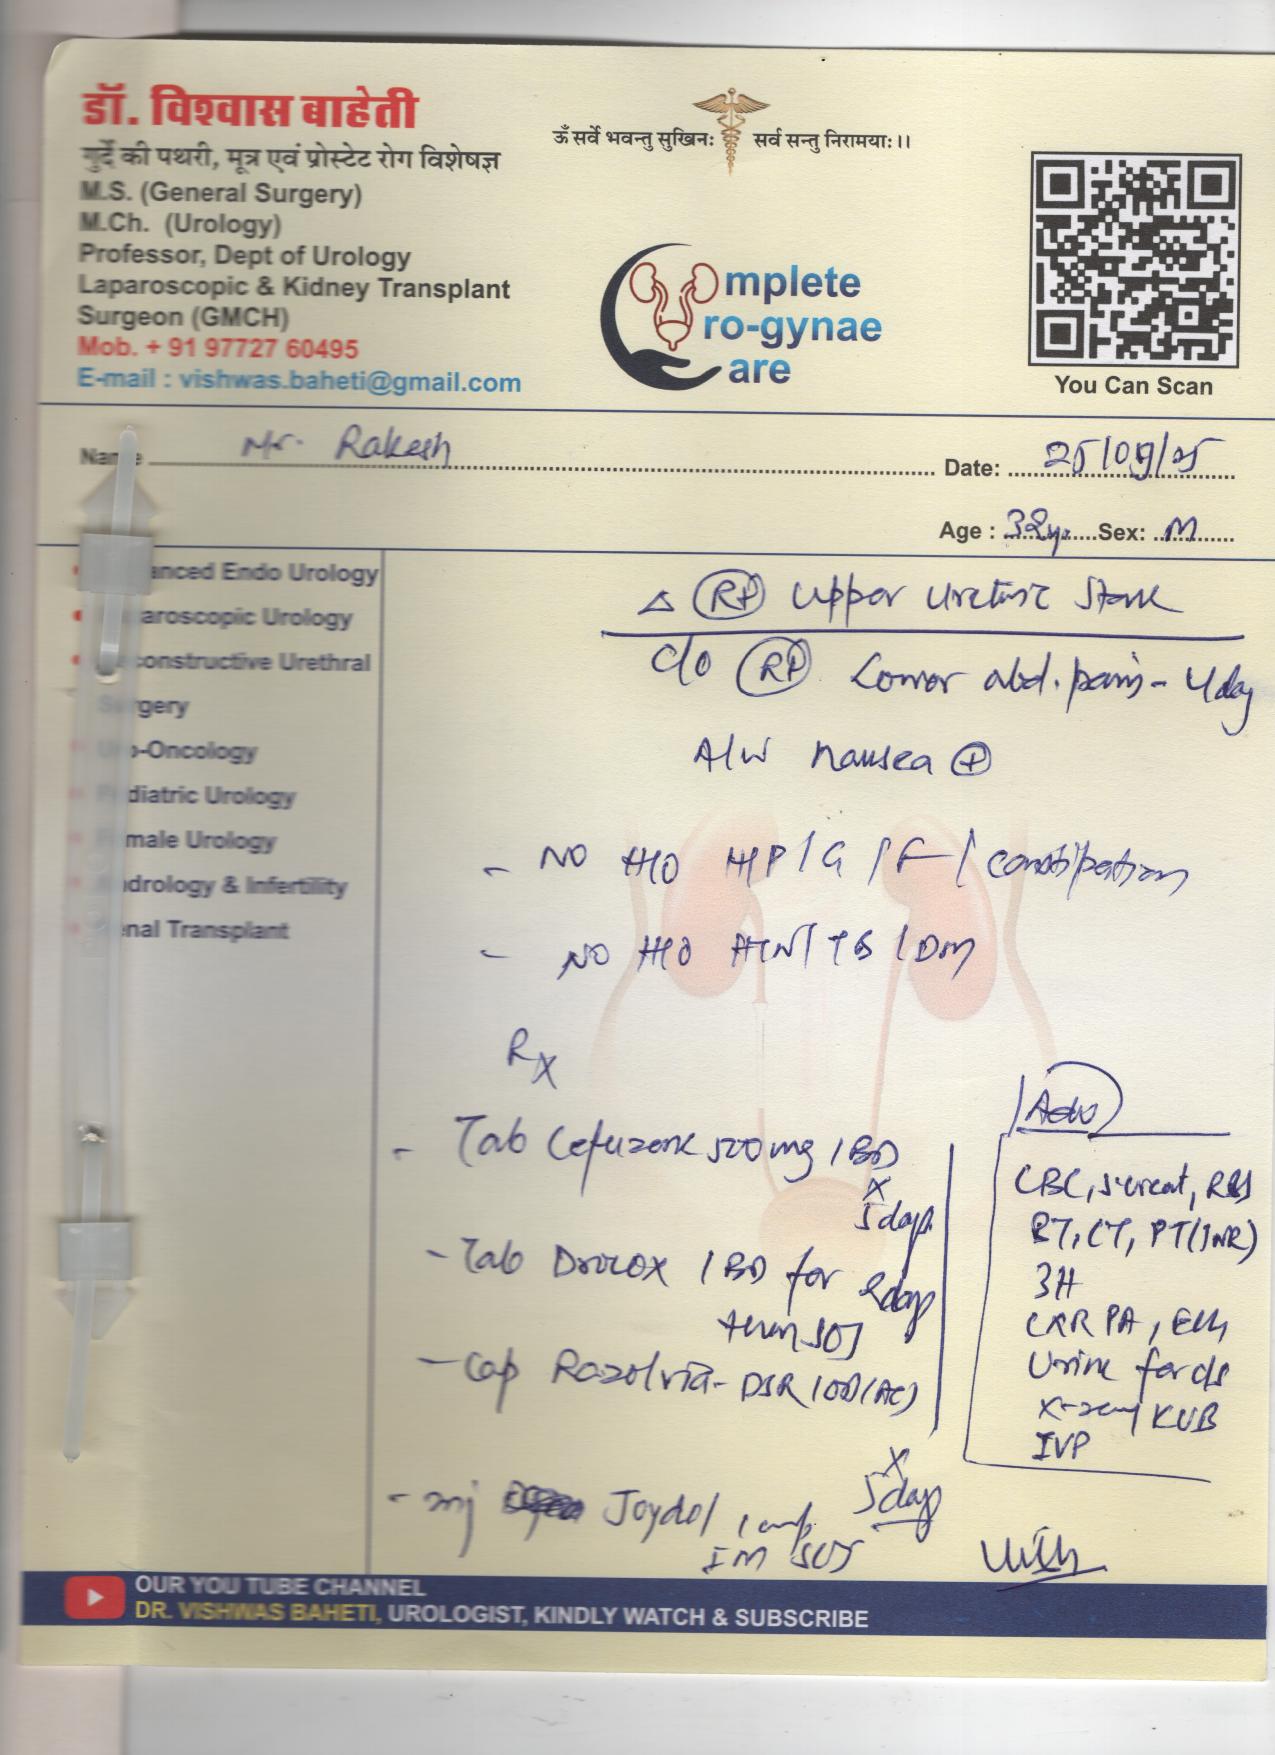 डॉ. विश्वास बाहेती
गुर्दे की पथरी, मूत्र एवं प्रोस्टेट रोग विशेषज्ञ
M.S. (General Surgery)
M.Ch. (Urology)
Professor, Dept of Urology
Laparoscopic & Kidney Transplant
Surgeon (GMCH)
Mob. + 91 97727 60495
E-mail : vishwas.baheti@gmail.com
ॐ सर्वे भवन्तु सुखिनः सर्व सन्तु निरामयाः।।
mplete
ro-gynae
are
You Can Scan
Name Mr. Rakesh Date: 25/09/25
Age : 32yr Sex: M
anced Endo Urology
aroscopic Urology
constructive Urethral
Surgery
o-Oncology
diatric Urology
male Urology
drology & Infertility
nal Transplant
△ (Rt) Upper Ureteric Stone
C/O (Rt) Lower abd. pain - 4 day
A/W Nausea ⊕
- NO H/O H/P/G/F/constipation
- NO H/O HTN/TB/DM
Rx
- Tab 500mg 1BD
x
5 days
- Tab 1BD for 2 days
then SOS
- Cap DSR 1OD (AC)
x
5 days
- Inj Joydol 1 amp
IM SOS
Adv
CBC, S.creat, RBS
BT, CT, PT(INR)
3H
CXR PA, ECG
Urine for c/s
X-ray KUB
IVP
OUR YOU TUBE CHANNEL
DR. VISHWAS BAHETI, UROLOGIST, KINDLY WATCH & SUBSCRIBE